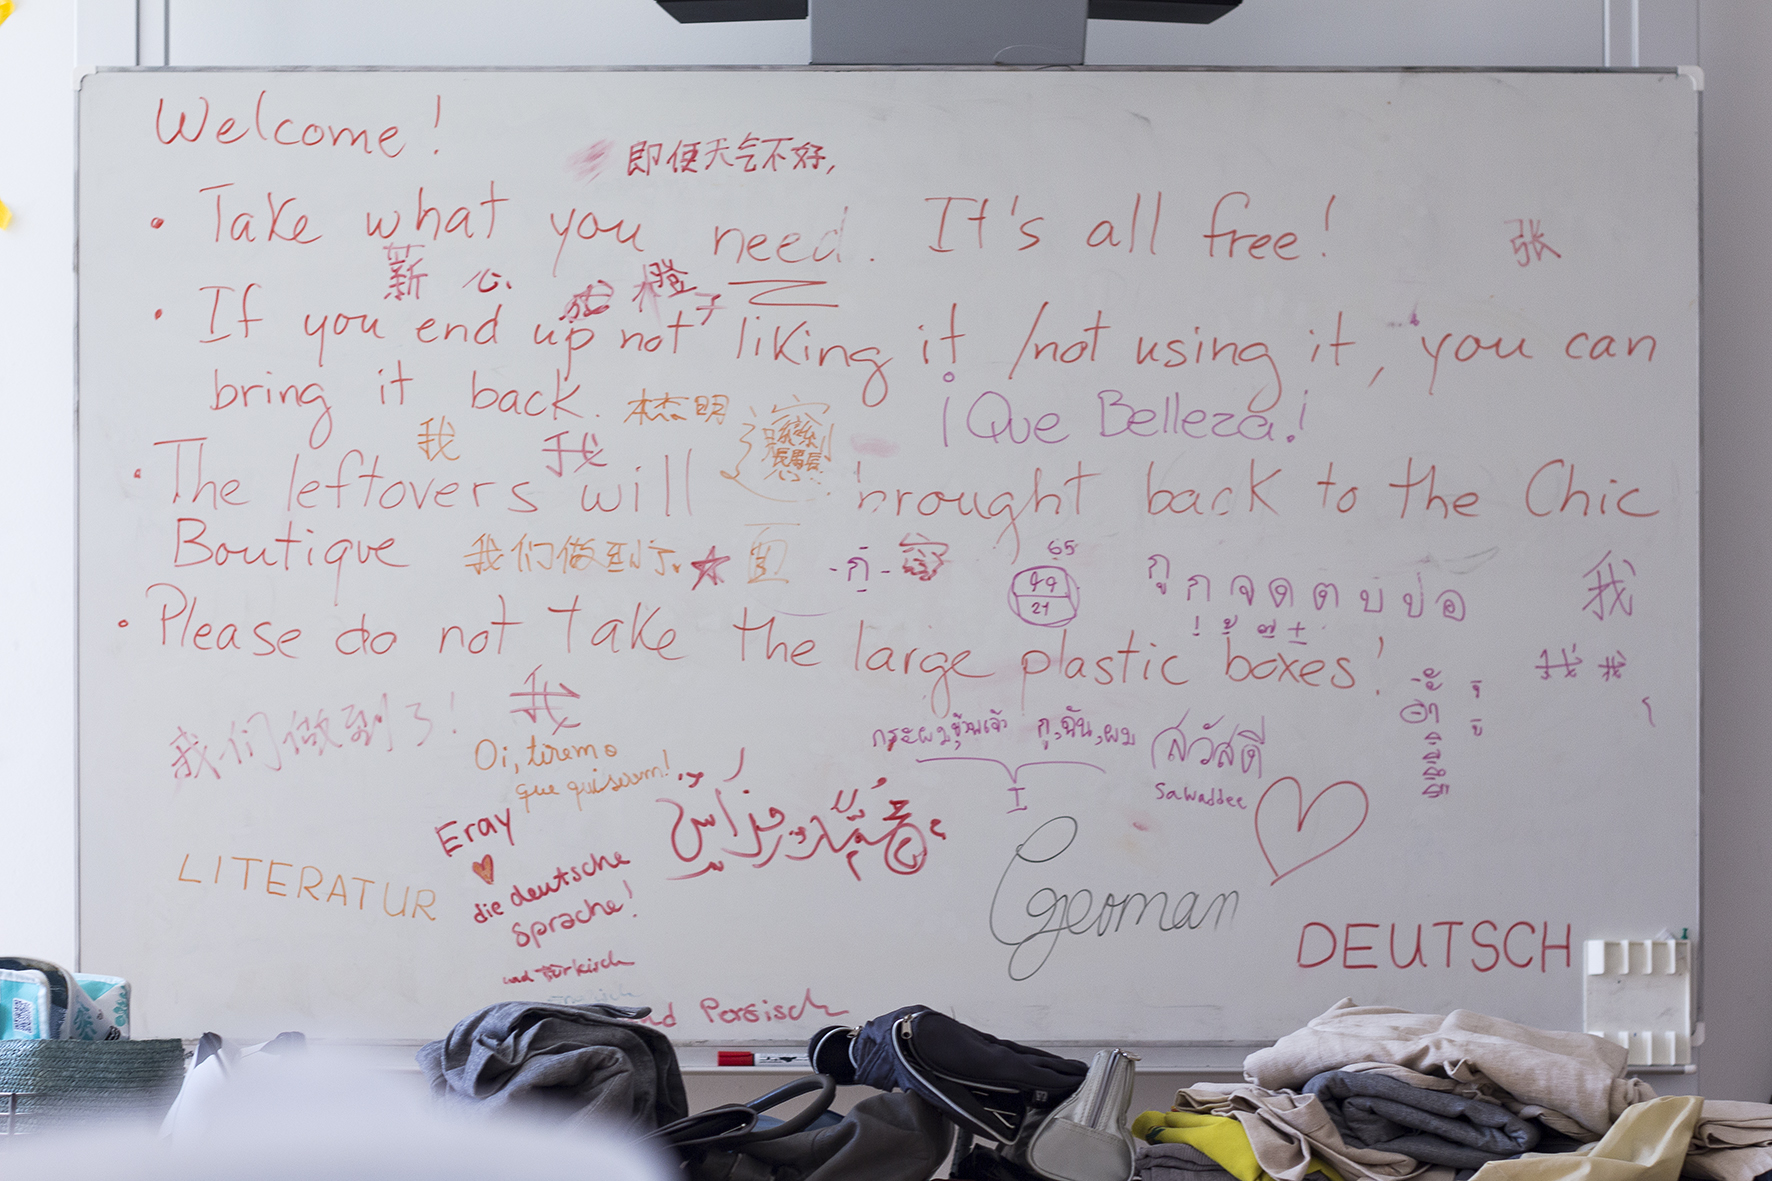 Welcome!
即便天气不好,
• Take what you need. It's all free!
张
薪 心 橙子
• If you end up not liking it /not using it, you can
bring it back.
¡Que Belleza!
我 我
• The leftovers will brought back to the Chic
Boutique
我们做到了
65
99
21
กู ก จ ด ต บ ป อ
我
• Please do not take the large plastic boxes!
我 我
我们做到了!
我
กระผม ข้าพเจ้า กู, ฉัน, ผม
I
สวัสดี
Sawaddee
Oi, tiremo
que quiserem!
Eray
die deutsche
Sprache!
und Türkisch
und Persisch
LITERATUR
German
DEUTSCH